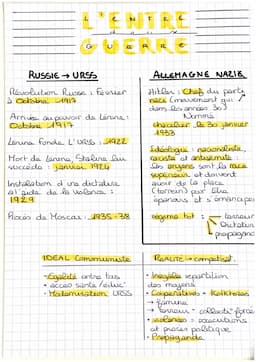 L'ENTRE
deux
GUERRE
RUSSIE → URSS
Révolution Russe : Février
à Octobre 1917
Arrivée au pouvoir de Lénine :
Octobre 1917
Lénine fonde L'URSS : 1922
Mort de Lénine, Staline lui
succède : janvier 1924
Installation d'une dictature
à l'aide de la violence :
1929
Procès de Moscou : 1935-38
ALLEMAGNE NAZIE
Hitler : Chef du parti
nazi (mouvement qui
dans les années 30)
Nommé
chancelier le 30 janvier
1933
Idéologie : nationaliste,
raciste et antisémite.
Les aryens sont la race
supérieure et doivent
avoir de la place
pour être
épanouis et s'émanciper
régime tot : terreur
Dictature
propagande
IDEAL Communiste
- Egalité entre tous
- accès santé / éduc°
- Modernisation URSS
REALITE → compétitif
- Inégale répartition
des moyens
- Coopératives = Kolkhozes
→ famine
→ terreur - collectif forcé
- violences = exécutions
et procès politique
- Propagande